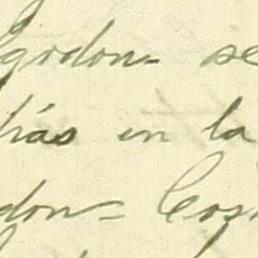 godon= se
hás en la
don= Cos